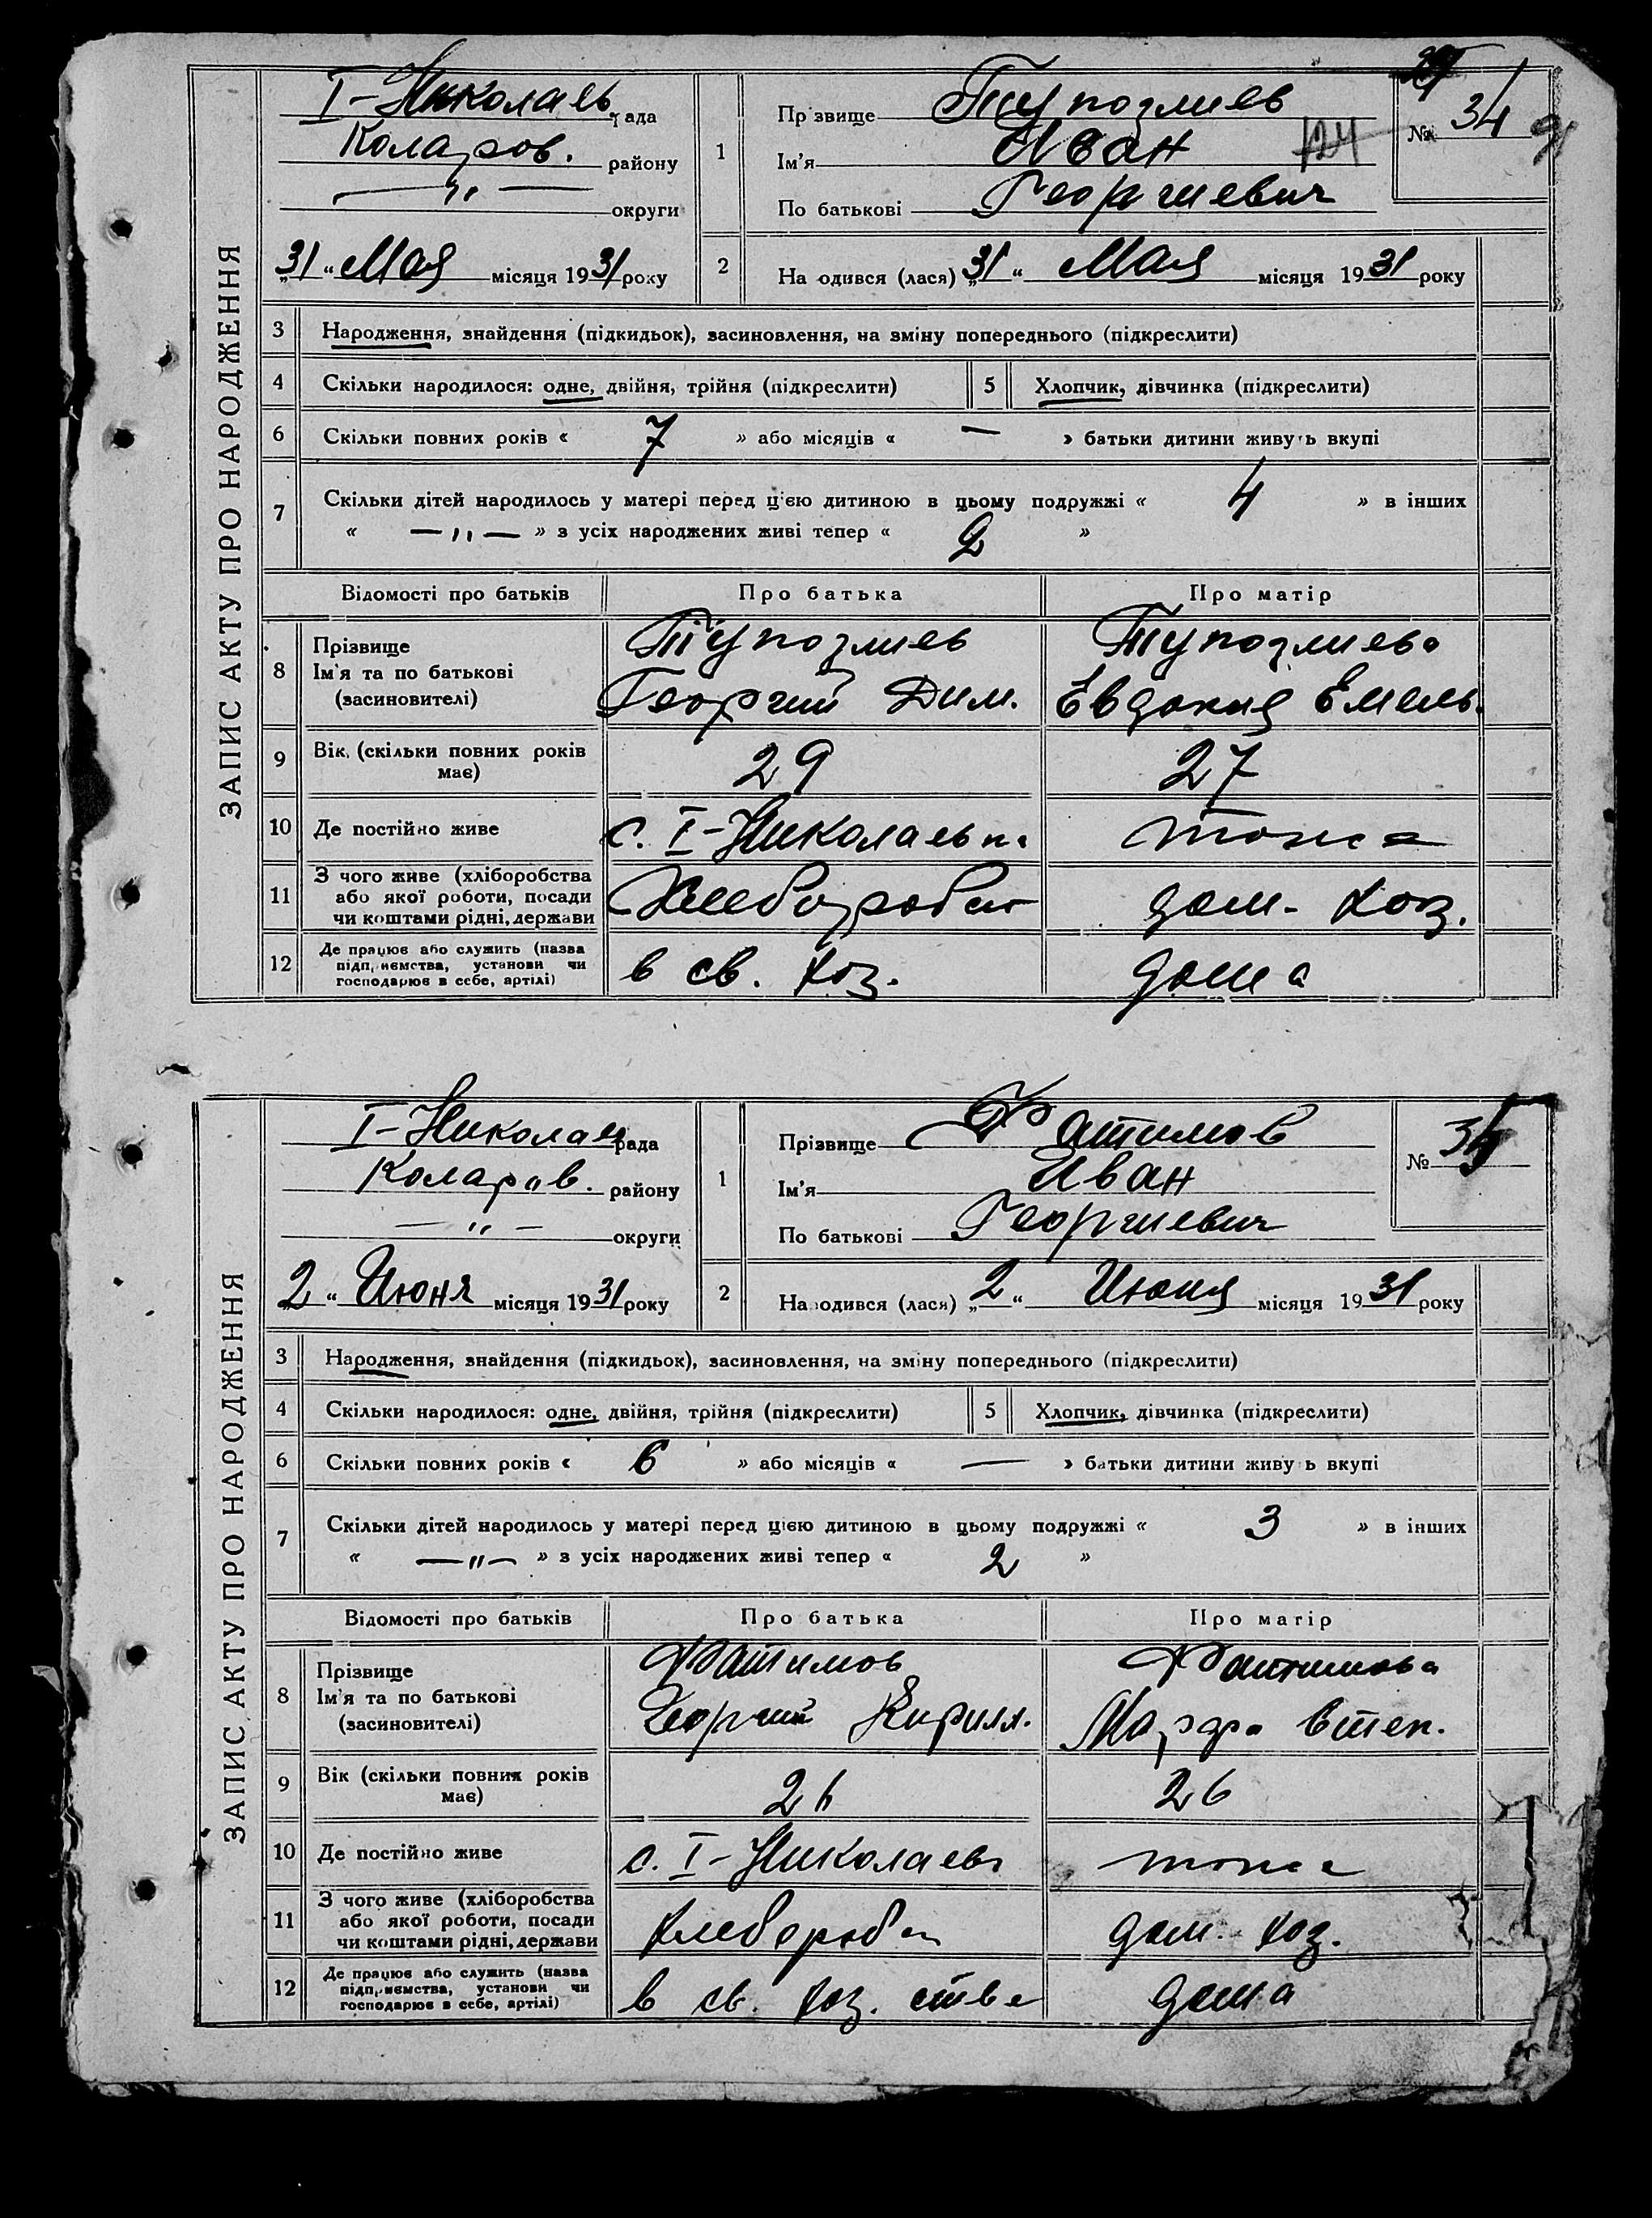 ЗАПИС АКТУ ПРО НАРОДЖЕННЯ
I-Николаев. рада
Коларов. району
— „ — округи
„31“ Мая місяця 1931 року
1 Прізвище Тупозлиев
Ім'я Иван 124
По батькові Георгиевич
№ 34
2 Народився (лася) „31“ Мая місяця 1931 року
3 Народження, знайдення (підкидьок), засиновлення, на зміну попереднього (підкреслити)
4 Скільки народилося: одне, двійня, трійня (підкреслити) 5 Хлопчик, дівчинка (підкреслити)
6 Скільки повних років « 7 » або місяців « — » батьки дитини живуть вкупі
7 Скільки дітей народилось у матері перед цією дитиною в цьому подружжі « 4 » в інших
« — „ — » з усіх народжених живі тепер « 2 »
Відомості про батьків Про батька Про матір
8 Прізвище Тупозлиев Тупозлиева
Ім'я та по батькові (засновителі) Георгий Дим. Евдокия Емель.
9 Вік, (скільки повних років має) 29 27
10 Де постійно живе с. I-Николаевка тоже
11 З чого живе (хліборобства або якої роботи, посади чи коштами рідні, держави Хлебороб дом. хоз.
12 Де працює або служить (назва підприємства, установи чи господарює в себе, артілі) в св. хоз. дома
ЗАПИС АКТУ ПРО НАРОДЖЕННЯ
I-Николаев рада
Коларов. району
— „ — округи
2 “ Июня місяця 1931 року
1 Прізвище Фатимов
Ім'я Иван
По батькові Георгиевич
№ 35
2 Народився (лася) „2“ Июня місяця 1931 року
3 Народження, знайдення (підкидьок), засиновлення, на зміну попереднього (підкреслити)
4 Скільки народилося: одне, двійня, трійня (підкреслити) 5 Хлопчик, дівчинка (підкреслити)
6 Скільки повних років « 6 » або місяців « — » батьки дитини живуть вкупі
7 Скільки дітей народилось у матері перед цією дитиною в цьому подружжі « 3 » в інших
« — „ — » з усіх народжених живі тепер « 2 »
Відомості про батьків Про батька Про матір
8 Прізвище Фатимов Фатимова
Ім'я та по батькові (засиновителі) Георгий Кирилл. Марфа Степ.
9 Вік (скільки повних років має) 26 26
10 Де постійно живе с. I-Николаев тоже
11 З чого живе (хліборобства або якої роботи, посади чи коштами рідні, держави Хлебороб дом. хоз.
12 Де працює або служить (назва підприємства, установи чи господарює в себе, артілі) в св. хоз. стве дома